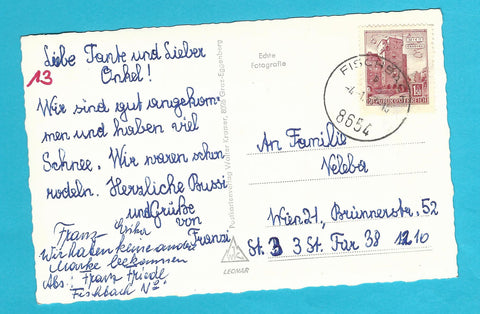 Liebe Tante und Lieber
Onkel!
13
Wir sind gut angekom-
men und haben viel
Schnee. Wir waren schon
rodeln. Herzliche Bussi
und Grüße
von
Franzi
Franz Erika
Wir haben keine andere
Marke bekommen
Abs: Franz Friedl
Fischbach
Echte
Fotografie
Postkartenverlag Walter Kramer, 8020 Graz-Eggenberg
LEONAR
FISCHBACH
8654
REPUBLIK ÖSTERREICH
An Familie
Veleba
Wien 21, Brünnerstr. 52
St. 3 3 St. Tür 38 1210